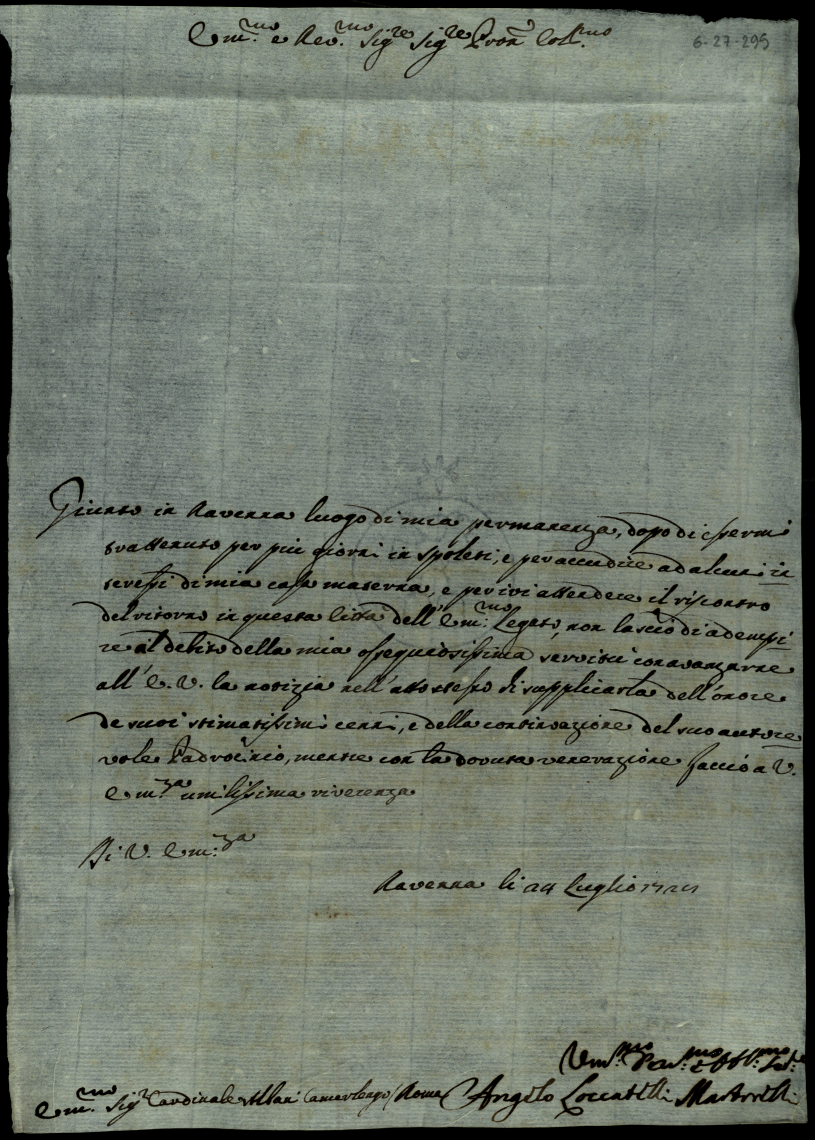 Em.mo e Rev.mo Sig.re Sig.re Pron Coll.mo
6-27-295
Giunto in Ravenna luogo di mia permanenza, dopo di essermi
trattenuto per più giorni in Spoleti, e per accudire ad alcuni in
teressi di mia casa materna, e per ivi attendere il riscontro
del ritorno in questa Città dell' Em.mo Legato, non lascio di adempi
re al debito della mia ossequiosissima servitù con avanzarne
all' E. V. la notizia nell' atto stesso di supplicarla dell' onore
de suoi stimatissimi cenni, e della continuazione del suo autore
vole Padrocinio, mentre con la dovuta venerazione faccio a V.
Em.za umilissima riverenza
Di V. Em.za
Ravenna li 24 Luglio
Um.mo Dev.mo e Obb.mo Ser.
Em.mo Sig.r Cardinale Albani Camerlengo / Roma Angelo Loccatelli Martorelli